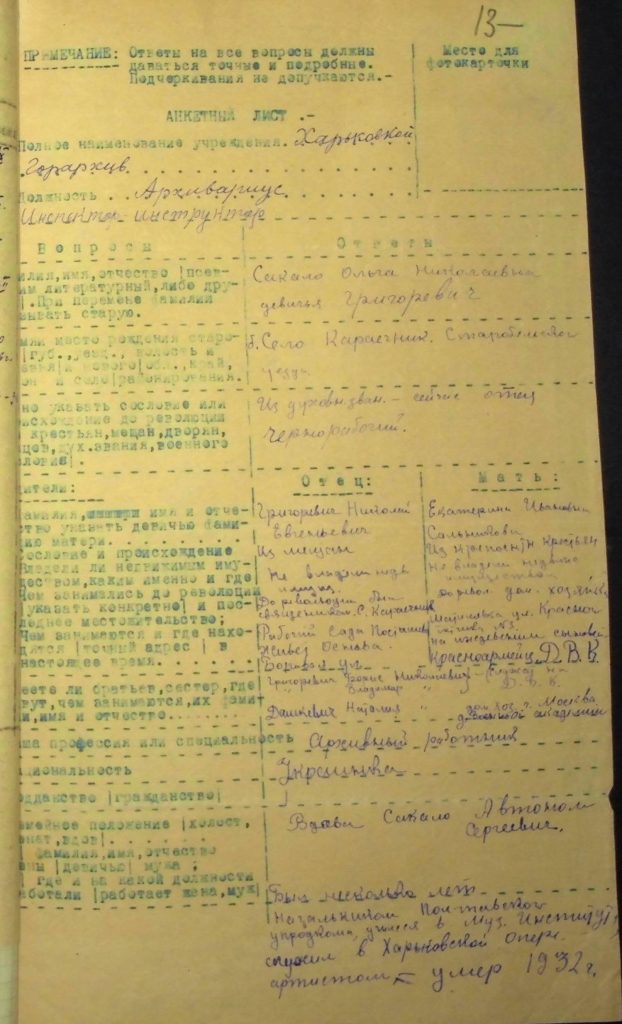 13-
ПРИМЕЧАНИЕ: Ответы на все вопросы должны
даваться точные и подробные.
Подчеркивания не допучкаются.-
Место для
фотокарточки
АНКЕТНЫЙ ЛИСТ .-
Полное наименование учреждения. Харьковской
Горархив
Должность . . Архивариус
Инспектор-инструктор
Вопросы
Ответы
илия,имя,отчество |псев-
им литературный,либо дру-
|.При перемене фамилии
ывать старую.
Сакало Ольга Николаевна
девичья Григоревич
мли место рождения старо-
|губ.,уезд., волость и
авня|и нового|обл.,край,
он и село|районирования.
б. Село Караечник. Старобельского
уезд.
но указать сословие или
исхождение до революции
крестьян,мещан,дворян,
цов,дух.звания,военного
ловия|.
Из духов. зван. - сейчас отец
чернорабочий.
дители:
Отец:
Мать:
амилия, имя и отче-
ство указать девичью фами-
ию матери. . . . . . . .
Григоревич Николай
Евгеньевич
Екатерина Ивановна
Сальникова
ословие и происхождение
Из мещан
Из крестьян
Владели ли недвижимым иму-
ществом,каким именно и где
Не владели
Не владели
Чем занимались до революции
указать конкретно| и пос-
леднее местожительство;
До революции был
священником с. Караечник
до револ. дом. хозяйка
Чем занимаются и где нахо-
дятся |точный адрес | в
настоящее время. . . . .
Рабочий Сада
на иждевении сыновей
Красноармейц Д.В.К.
меете ли братьев,сестер,где
вут,чем занимаются,их фами-
и,имя и отчество. . . . . . .
Григоревич Борис Николаевич
" Владимир "
Д.В.К.
Дашкевич Наталия "
дом.хоз. г. Москва
академии
ша профессия или специальность
Архивный работник
циональность
Украинка
одданство |гражданство|
мейное положение |холост,
енат,вдов|. . . . . . .
фамилия,имя,отчество
ены |девичью| мужа ;
где и на какой должности
аботали |работает жена,муж|
Вдова Сакало Автоном
Сергеевич.
Был несколько лет
начальником Полтавского
упродкома, учился в Муз. Институт
служил в Харьковской Опере
артистом - умер 1932 г.